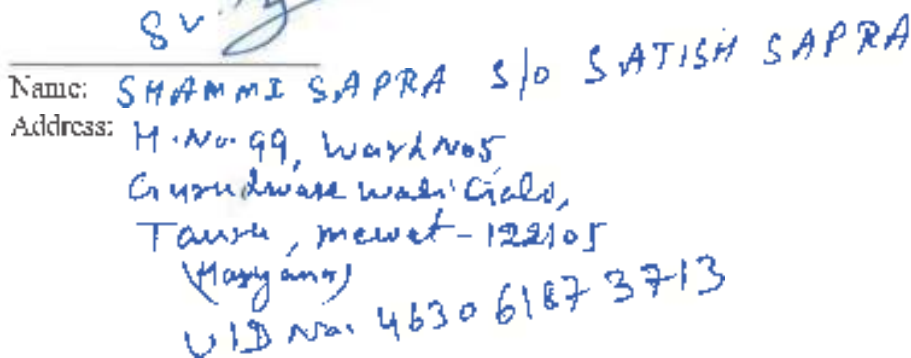 Name: SHAMMI SAPRA S/o SATISH SAPRA
Address: H.No. 99, Ward No 5
Gurudware wali Gali,
Tauru, mewat - 122105
(Haryana)
UID No. 4630 6187 3713